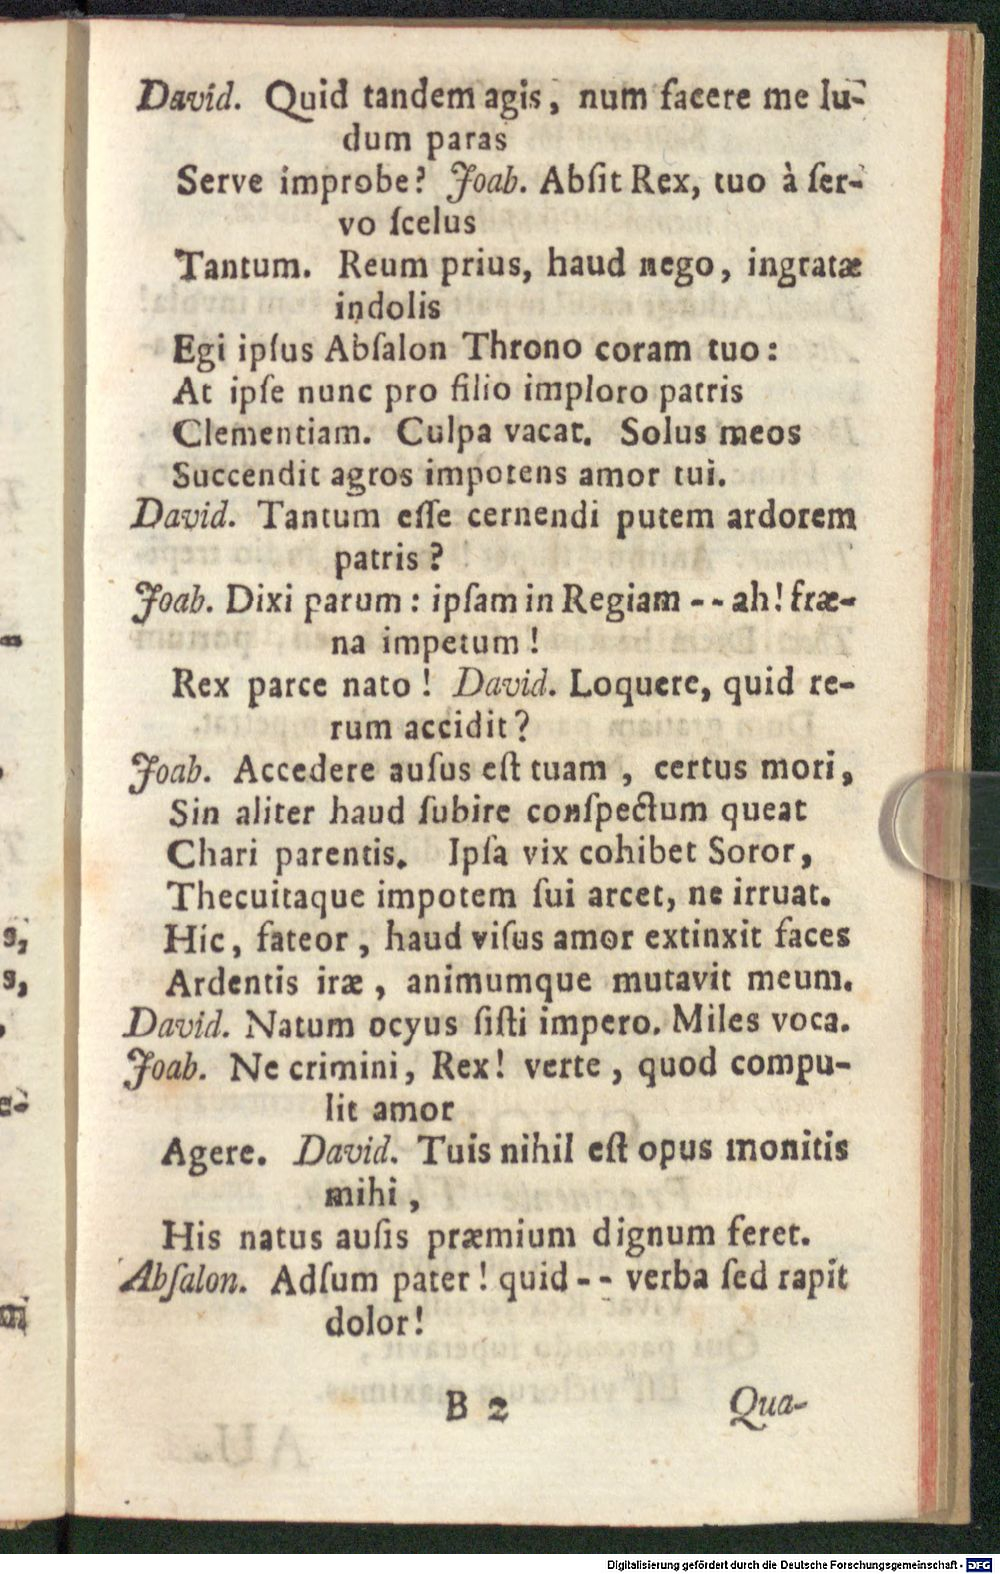 David. Quid tandem agis, num facere me lu-
dum paras
Serve improbe? Joab. Abſit Rex, tuo à ſer-
vo ſcelus
Tantum. Reum prius, haud nego, ingratæ
indolis
Egi ipſus Abſalon Throno coram tuo:
At ipſe nunc pro filio imploro patris
Clementiam. Culpa vacat. Solus meos
Succendit agros impotens amor tui.
David. Tantum eſſe cernendi putem ardorem
patris?
Joab. Dixi parum: ipſam in Regiam -- ah! fræ-
na impetum!
Rex parce nato! David. Loquere, quid re-
rum accidit?
Joab. Accedere auſus eſt tuam, certus mori,
Sin aliter haud ſubire conſpectum queat
Chari parentis. Ipſa vix cohibet Soror,
Thecuitaque impotem ſui arcet, ne irruat.
Hic, fateor, haud viſus amor extinxit faces
Ardentis iræ, animumque mutavit meum.
David. Natum ocyus ſiſti impero. Miles voca.
Joab. Ne crimini, Rex! verte, quod compu-
lit amor
Agere. David. Tuis nihil eſt opus monitis
mihi,
His natus auſis præmium dignum feret.
Abſalon. Adſum pater! quid -- verba ſed rapit
dolor!
B 2 Qua-
Digitalisierung gefördert durch die Deutsche Forschungsgemeinschaft - DFG